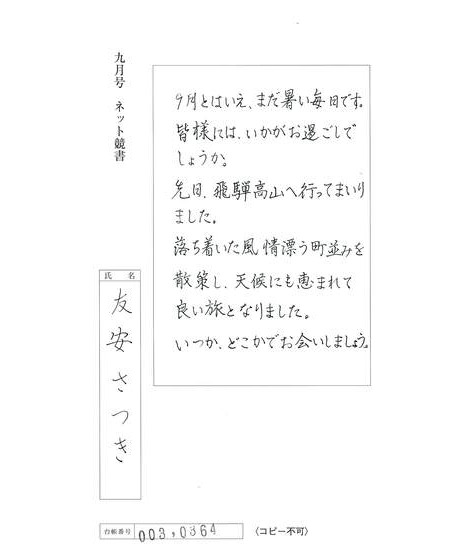 九月号 ネット競書
9月とはいえ、まだ暑い毎日です。
皆様には、いかがお過ごしで
しょうか。
先日、飛騨高山へ行ってまいり
ました。
落ち着いた風情漂う町並みを
散策し、天候にも恵まれて
良い旅となりました。
いつか、どこかでお会いしましょう。
氏名
友安さつき
台帳番号 003,0864 〈コピー不可〉